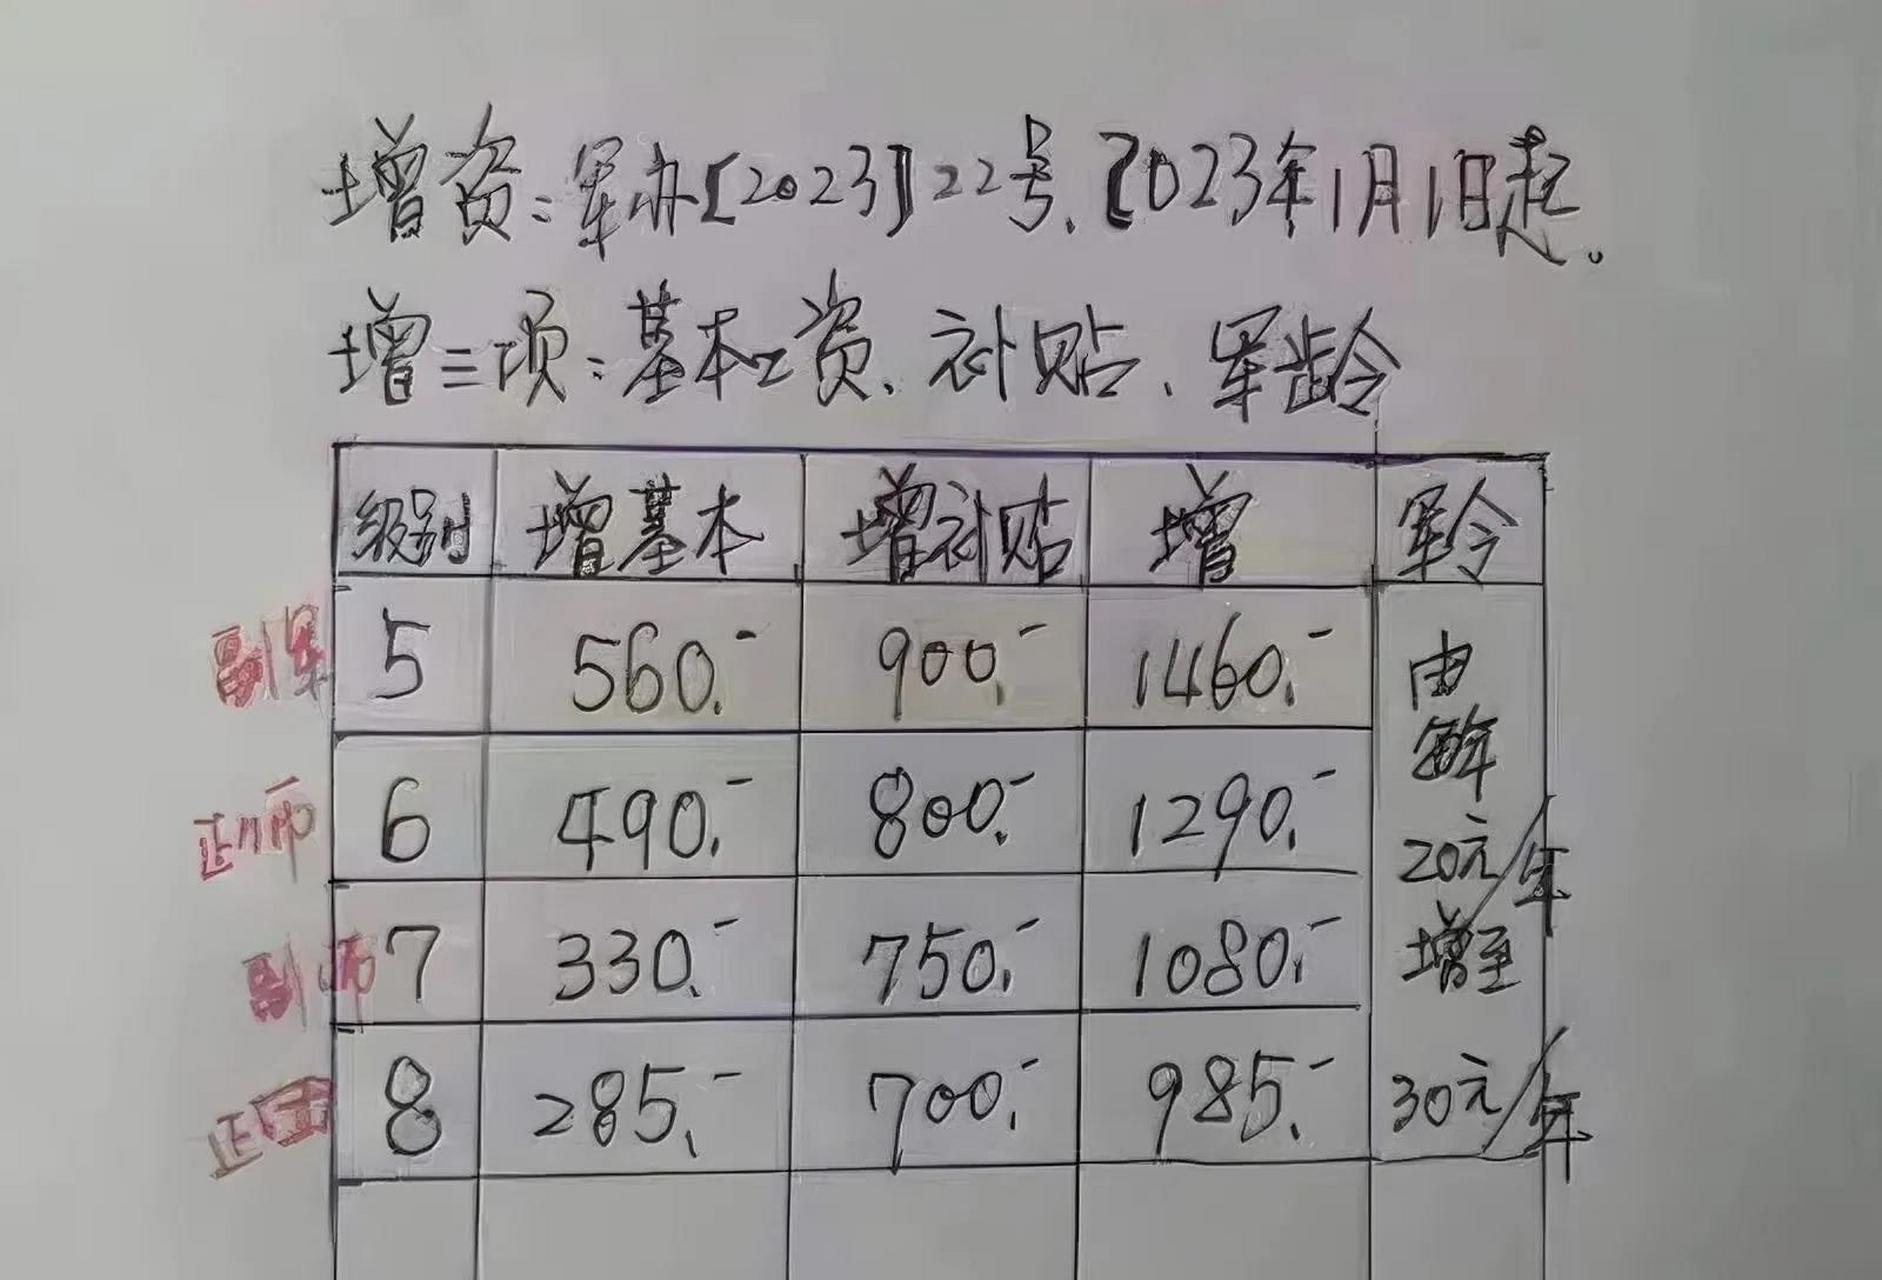 增资:军办[2023]22号、2023年1月1日起。
增三项:基本工资、补贴、军龄
级别 增基本 增补贴 增 军令
副军 5 560.- 900.- 1460.-
正师 6 490.- 800.- 1290.-
副师 7 330.- 750.- 1080.-
正团 8 285.- 700.- 985.-
由
每年
20元/年
增至
30元/年